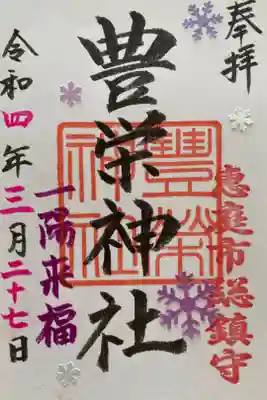 奉拝
恵庭市総鎮守
豊栄神社
豊榮神社
一陽来福
令和四年三月二十七日